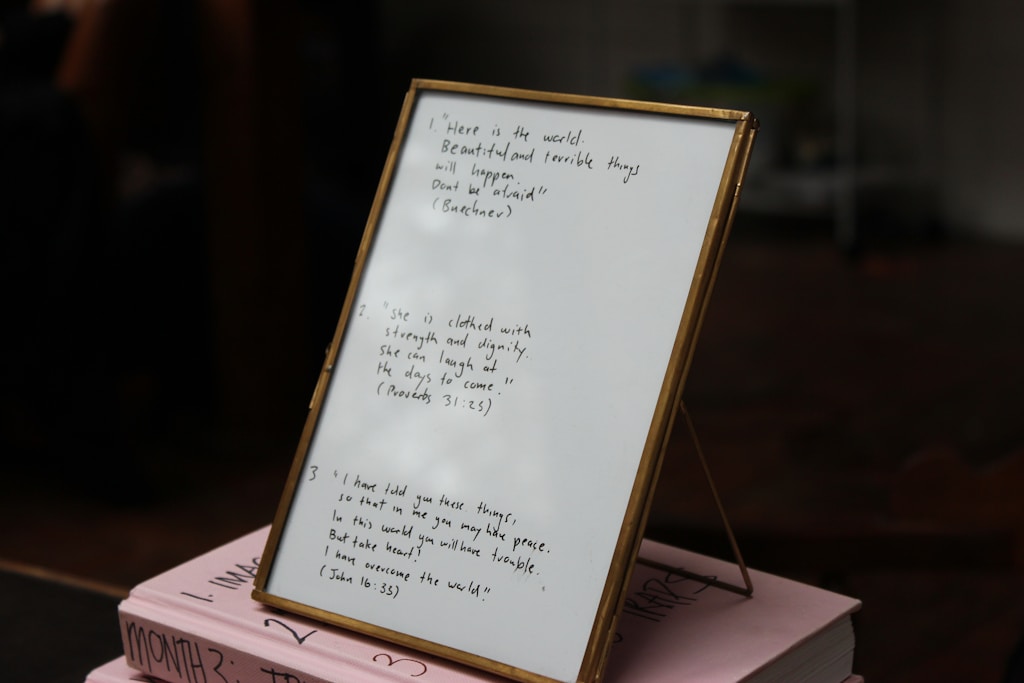 1. "Here is the world.
Beautiful and terrible things
will happen.
Dont be afraid"
(Buechner)
2. "She is clothed with
strength and dignity.
She can laugh at
the days to come."
(Proverbs 31:25)
3 "I have told you these things,
so that in me you may have peace.
In this world you will have trouble.
But take heart!
I have overcome the world."
(John 16:33)
1. IMAG
2
3
TRAPS
MONTH 3: